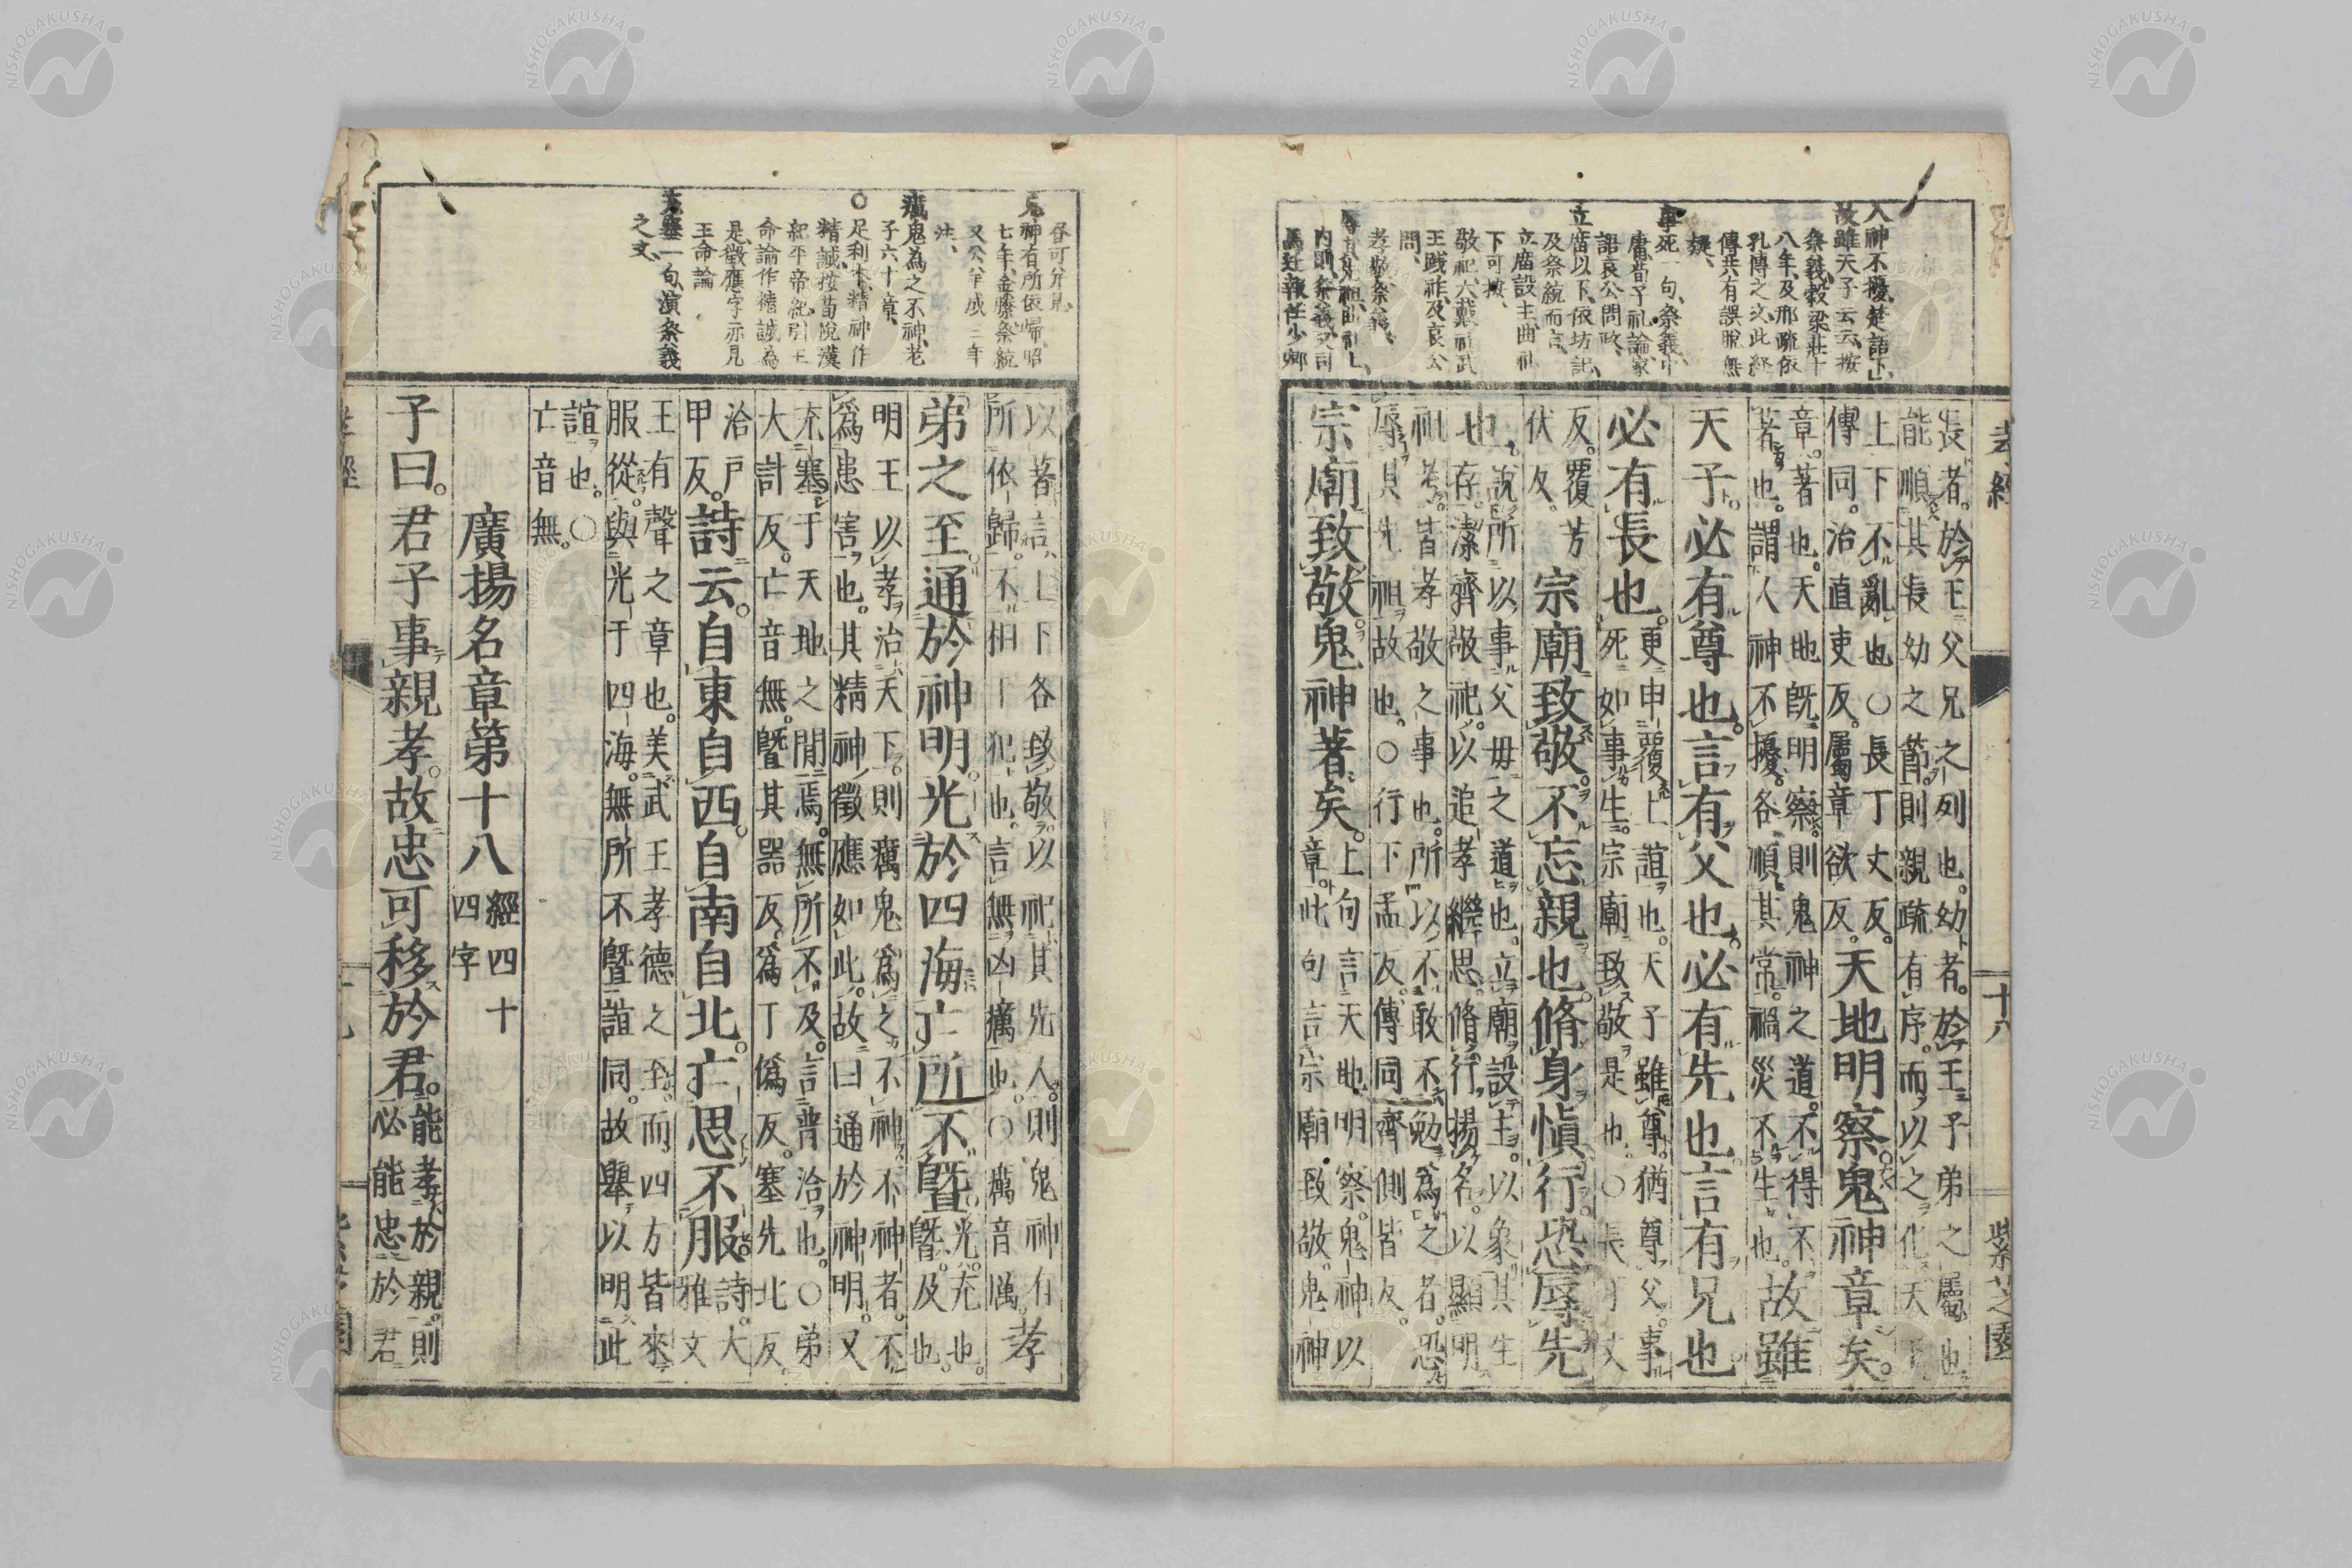 人神不擾、楚語下、
故雖天子云云、按
祭義、穀梁莊十
八年、及邢疏依
孔傳之文、此経
傳共有誤脫無
疑、
事死一句、祭義、中
庸、荀子礼論、家
語哀公問政、
立庿以下、依坊記、
及祭統而言、
立庿設主、曲礼
下可按、
敬祀、大戴礼武
王踐祚、及哀公
問、
孝敬、祭義、
內則、祭義、又司
馬迁報任少卿
孝經
十八
紫芝園
長者。於王父兄之列也。幼者。於王子弟之屬也。
能順其長幼之節。則親疏有序。而以之化天下
上下不亂也○長丁丈反。
傳同。治直吏反。屬章欲反。
天地明察。鬼神章矣。
章。著也。天地既明察。則鬼神之道。不得不
著也。謂人神不擾。各順其常。禍災不生也。
故雖
天子必有尊也。言有父也。必有先也。言有兄也
必有長也。
更申覆上誼也。天子雖尊。猶尊父。事
死如事生。宗廟致敬是也。○長丁丈
反。覆芳
伏反。
宗廟致敬。不忘親也。脩身愼行。恐辱先
也。
說所以事父母之道也。立廟設主。以象其生
存。潔齊敬祀。以追孝繼思。脩行揚名。以顯明
祖考。皆孝敬之事也。所以不敢不勉爲之者。恐
辱其先祖故也。○行下孟反。傳同。齊側皆反。
宗廟致敬。鬼神著矣。
上句言天地明察。鬼神以
章。此句言宗廟致敬。鬼神
鬼神有所依歸、昭
七年、金縢、祭統
又公羊成三年
注、
癘鬼為之不神、老
子六十章、
○足利本、精神作
精誠、按荀悅漢
紀平帝紀、引王
命論作精誠為
是、徵應字亦見
王命論
充塞一句、演祭義
之文、
以著。言上下各致敬。以祀其先人。則鬼神有
所依歸。不相犯也。言無凶癘也。○癘音厲
孝
弟之至。通於神明。光於四海。亡所不曁
光。充也。
曁。及也。
明王以孝治天下。則癘鬼爲之不神。不神者。不
爲患害也。其精神徵應如此。故曰通於神明。又
充塞于天地之閒焉。無所不及。言普洽也。○弟
大計反。亡音無。曁其器反。爲丁僞反。塞先北反。
洽戶
甲反。
詩云。自東自西。自南自北。亡思不服
詩。大
雅文
王有聲之章也。美武王孝德之至。而四方皆來
服從。與光于四海。無所不曁誼同。故舉以明此
誼也。○
亡音無。
廣揚名章第十八
經四十
四字
子曰。君子事親孝。故忠可移於君。
能孝於親。則
必能忠於君
NISHOGAKUSHA